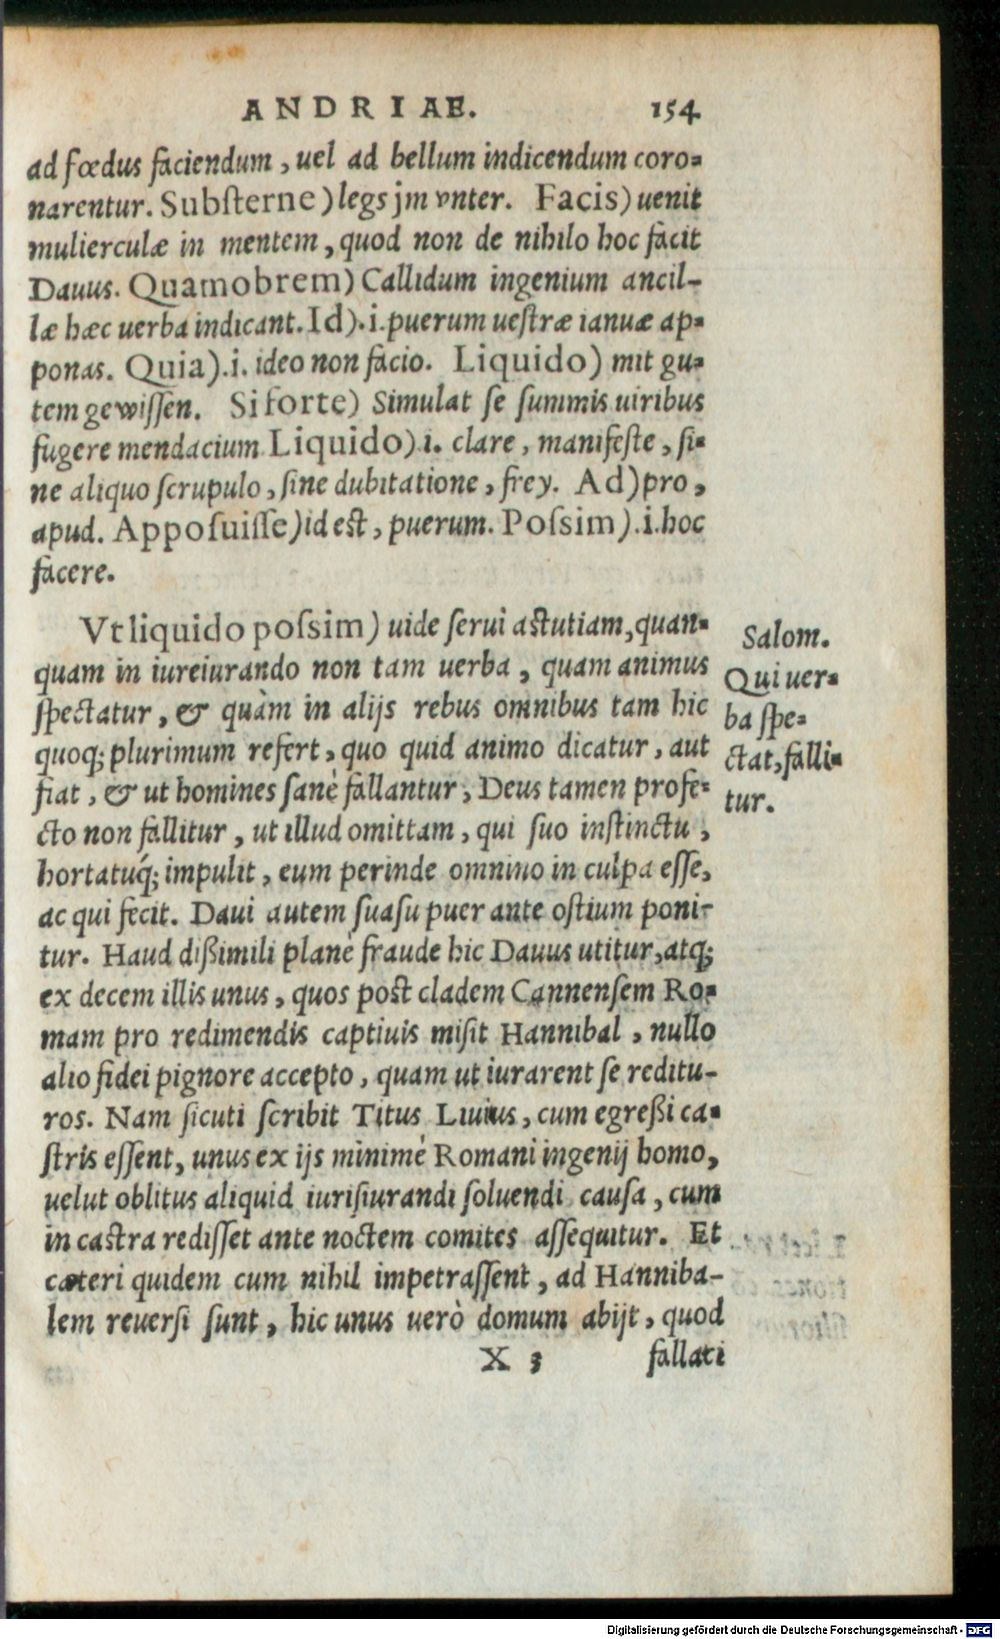 ANDRIAE. 154
ad fœdus faciendum, uel ad bellum indicendum coro-
narentur. Subſterne) legs jm vnter. Facis) uenit
mulierculæ in mentem, quod non de nihilo hoc facit
Dauus. Quamobrem) Callidum ingenium ancil-
læ hæc uerba indicant. Id).i. puerum ueſtræ ianuæ ap-
ponas. Quia).i. ideo non facio. Liquido) mit gu-
tem gewiſſen. Si forte) Simulat ſe ſummis uiribus
fugere mendacium. Liquido) i. clare, manifeſte, ſi-
ne aliquo ſcrupulo, ſine dubitatione, frey. Ad) pro,
apud. Appoſuiſſe) id eſt, puerum. Poſsim).i. hoc
facere.
Vt liquido poſsim) uide ſerui aſtutiam, quan-
quam in iureiurando non tam uerba, quam animus
ſpectatur, & quàm in alijs rebus omnibus tam hic
quoq; plurimum refert, quo quid animo dicatur, aut
fiat, & ut homines ſanè fallantur, Deus tamen profe-
cto non fallitur, ut illud omittam, qui ſuo inſtinctu,
hortatuq́; impulit, eum perinde omnino in culpa eſſe,
ac qui fecit. Daui autem ſuaſu puer ante oſtium poni-
tur. Haud dißimili planè fraude hic Dauus utitur, atq;
ex decem illis unus, quos poſt cladem Cannenſem Ro-
mam pro redimendis captiuis miſit Hannibal, nullo
alio fidei pignore accepto, quam ut iurarent ſe reditu-
ros. Nam ſicuti ſcribit Titus Liuius, cum egreßi ca-
ſtris eſſent, unus ex ijs minimè Romani ingenij homo,
uelut oblitus aliquid iuriſiurandi ſoluendi cauſa, cum
in caſtra rediſſet ante noctem comites aſſequitur. Et
cæteri quidem cum nihil impetraſſent, ad Hanniba-
lem reuerſi ſunt, hic unus uerò domum abijt, quod
X 3 fallaci
Salom.
Qui uer-
ba ſpe-
ctat, falli-
tur.
Digitalisierung gefördert durch die Deutsche Forschungsgemeinschaft - DFG